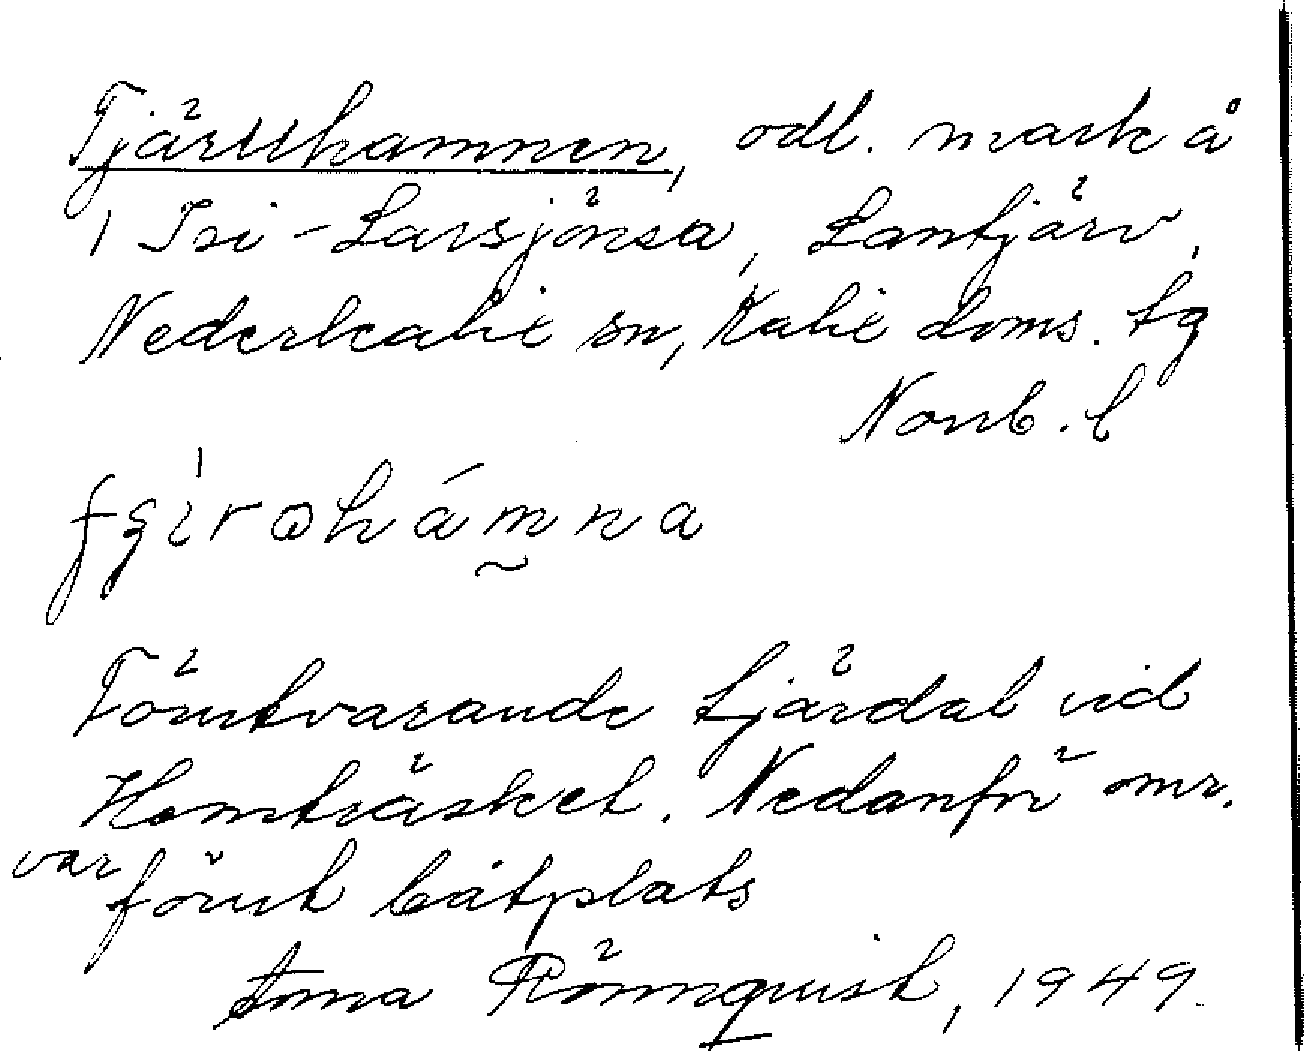 Tjäruhamnen, odl. mark å
1 Isi-Larsjönsa, Lantjärv,
Nederkalix sn, Kalix doms. tg
Norrb. l
Förutvarande tjärdal vid
Hemträsket. Nedanför omr.
var förut båtplats
Anna Rönnquist, 1949.